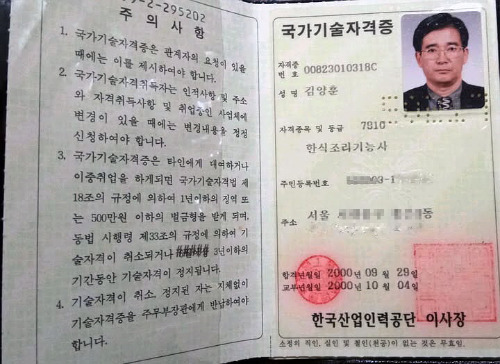 2-295202
주 의 사 항
1. 국가기술자격증은 관계자의 요청이 있을
때에는 이를 제시하여야 합니다.
2. 국가기술자격취득자는 인적사항 및 주소
와 자격취득사항 및 취업중인 사업체에
변경이 있을 때에는 변경내용을 정정
신청하여야 합니다.
3. 국가기술자격증은 타인에게 대여하거나
이중취업을 하게되면 국가기술자격법 제
18조의 규정에 의하여 1년이하의 징역 또
는 500만원 이하의 벌금형을 받게 되며,
동법 시행령 제33조의 규정에 의하여 기
술자격이 취소되거나 3년이하의
기간동안 기술자격이 정지됩니다.
4. 기술자격이 취소, 정지된 자는 지체없이
기술자격증을 주무부장관에게 반납하여야
합니다.
국가기술자격증
자격증
번 호 00823010318C
성 명 김양훈
자격종목 및 등급 7910
한식조리기능사
주민등록번호
주소 서울 동
합격년월일 2000 년 09 월 29 일
교부년월일 2000 년 10 월 04 일
한국산업인력공단 이사장
소정의 직인, 실인 및 철인(천공)이 없는 것은 무효임.